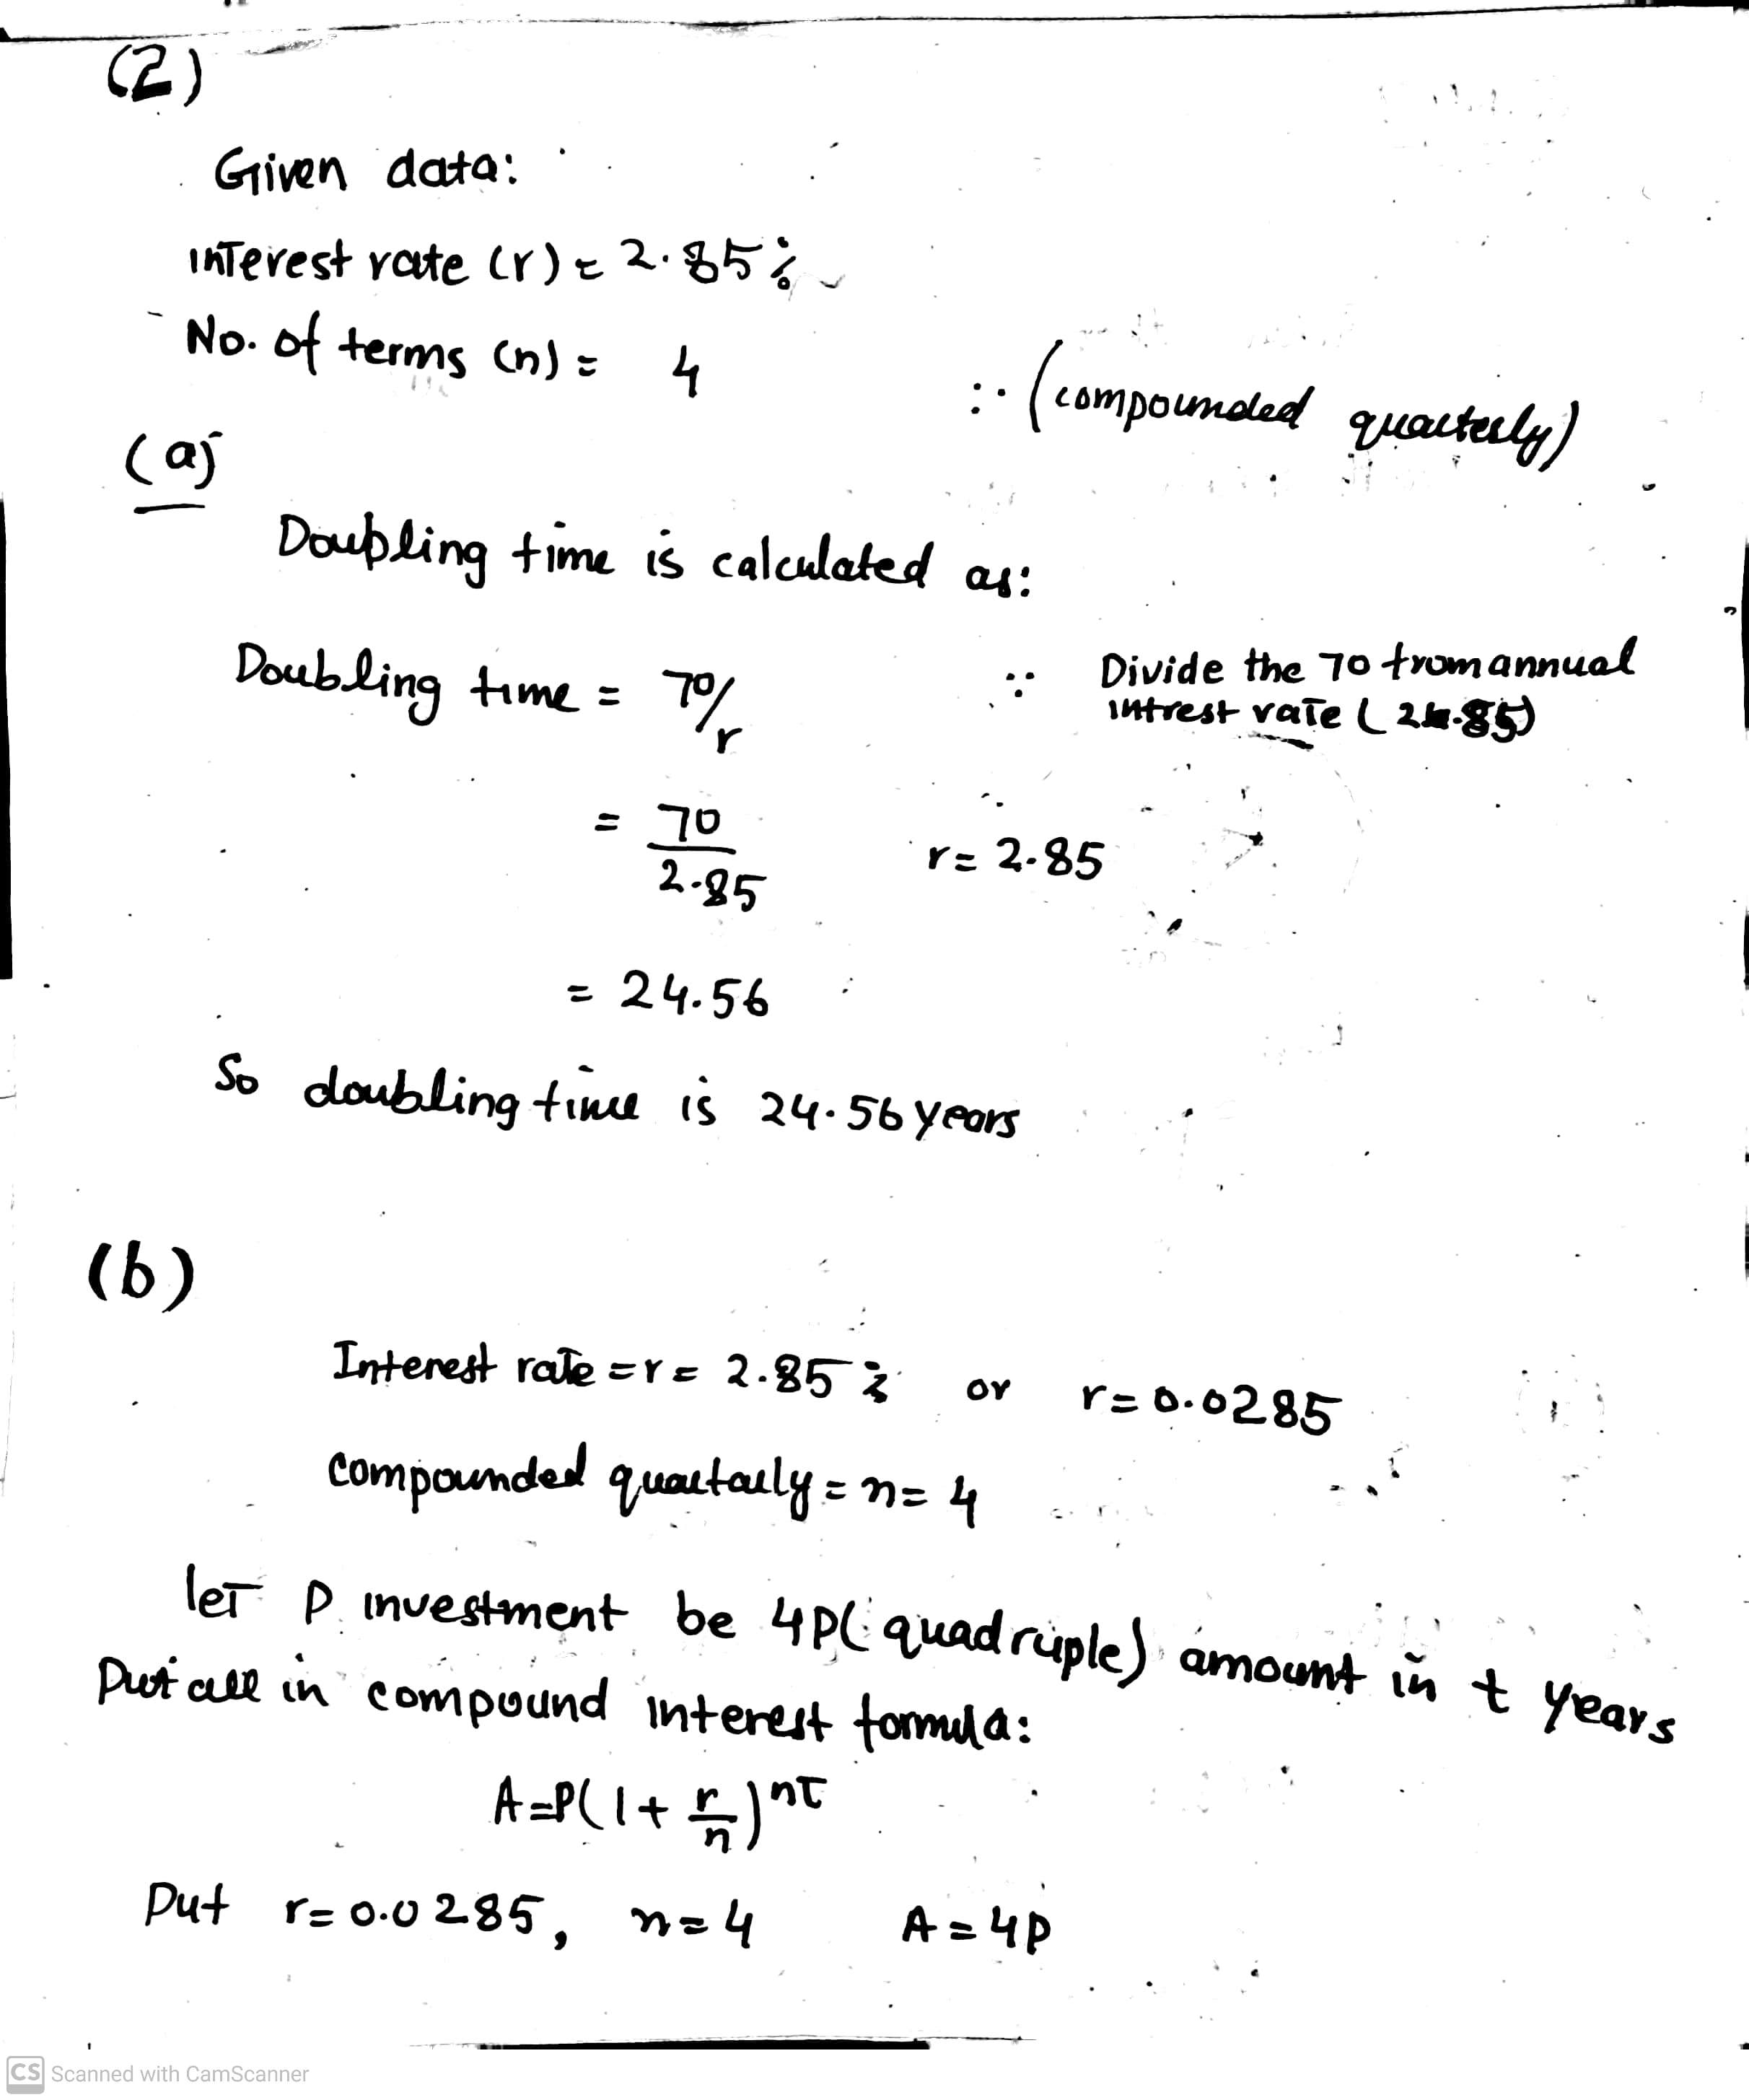 (2)
Given data:
interest rate (r) = 2.85%
No. of terms (n) = 4
∵ (compounded quarterly)
(a)
Doubling time is calculated as:
Doubling time = 70/r
∵ Divide the 70 from annual
intrest rate (2.85)
= 70/2.85
r = 2.85
= 24.56
So doubling time is 24.56 years
(b)
Interest rate = r = 2.85% or r = 0.0285
compounded quartarly = n = 4
let P investment be 4P (quadruple) amount in t years
Put all in compound interest formula:
A = P(1 + r/n)^nt
Put r = 0.0285, n = 4 A = 4P
CS Scanned with CamScanner